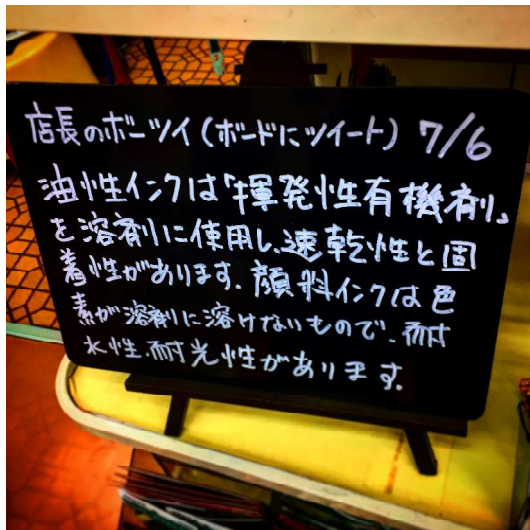 店長のボーツイ(ボードにツイート) 7/6
油性インクは「揮発性有機剤」
を溶剤に使用し、速乾性と固
着性があります。顔料インクは色
素が溶剤に溶けないもので、耐
水性、耐光性があります。